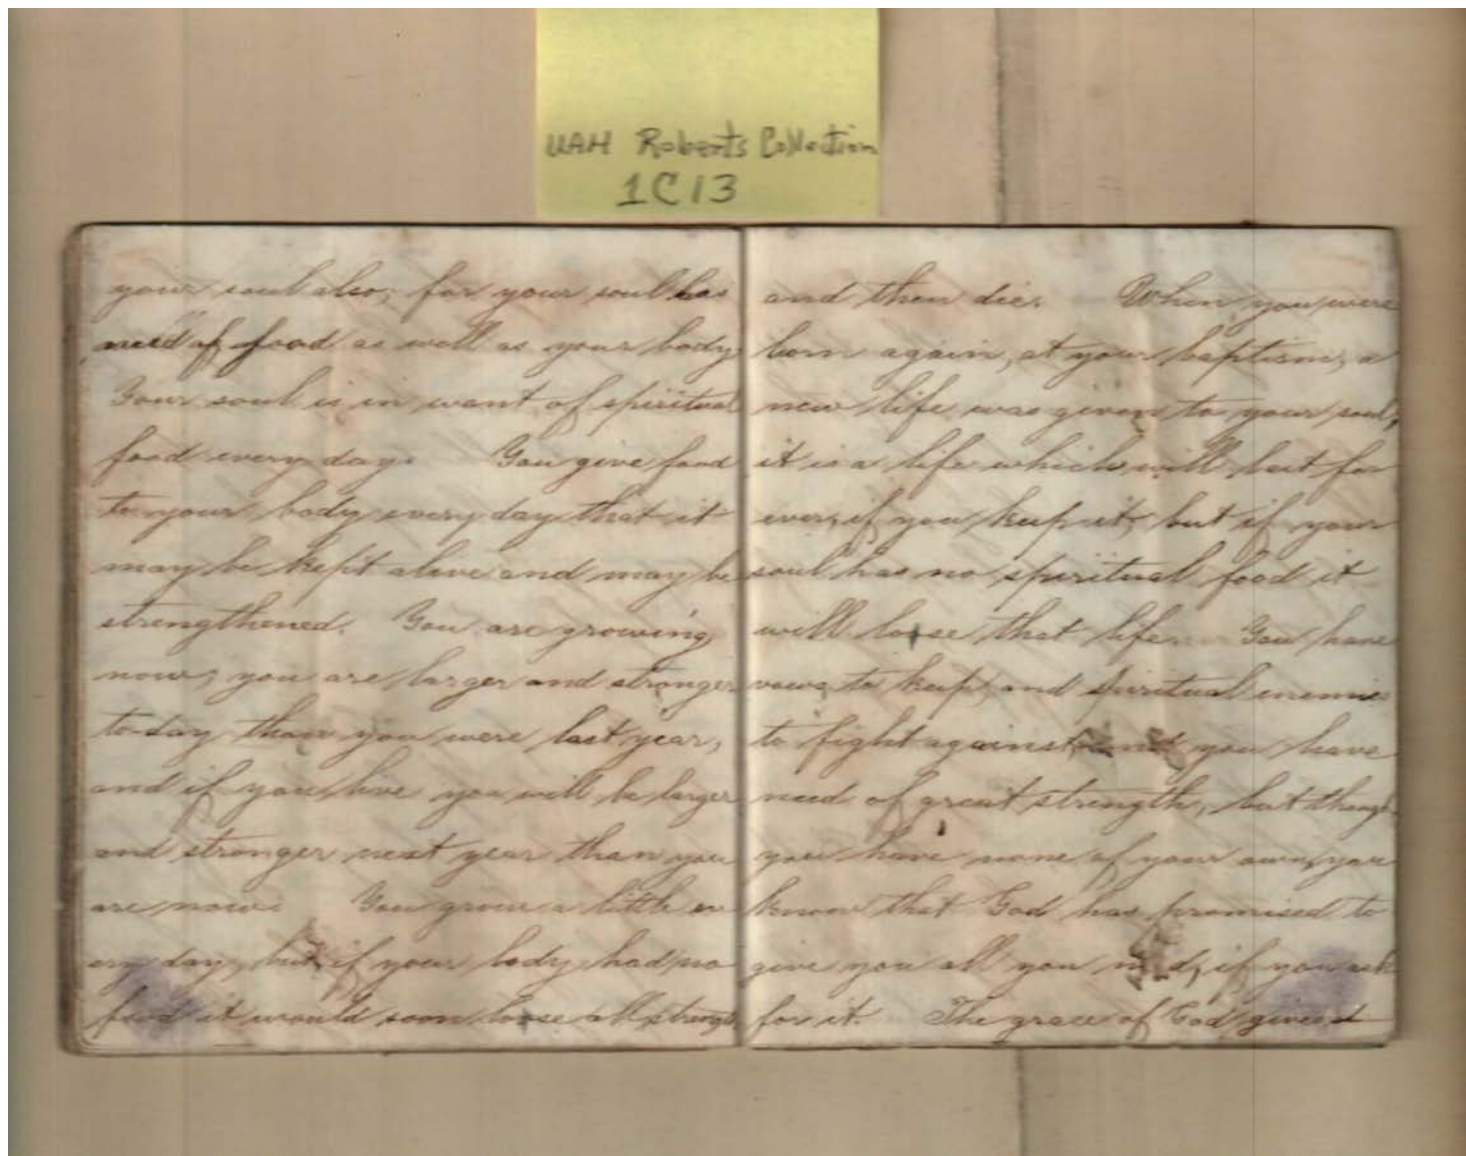 UAH Roberts Collection
1C13
your soul also; for your soul has
need of food as well as your body
Your soul is in want of spiritual
food every day. You give food
to your body every day that it
may be kept alive and may be
strengthened. You are growing
now; you are larger and stronger
to-day than you were last year,
and if you live you will be larger
and stronger next year than you
are now. You grow a little ev
ery day, but if your body had no
food it would soon loose all strength
and then die. When you were
born again, at your baptism, a
new life was given to your soul,
it is a life which will last for
ever, if you keep it, but if your
soul has no spiritual food it
will loose that life. You have
vows to keep, and spiritual enemies
to fight against and you have
need of great strength, but though
you have none of your own, you
know that God has promised to
give you all you need, if you ask
for it. The grace of God gives